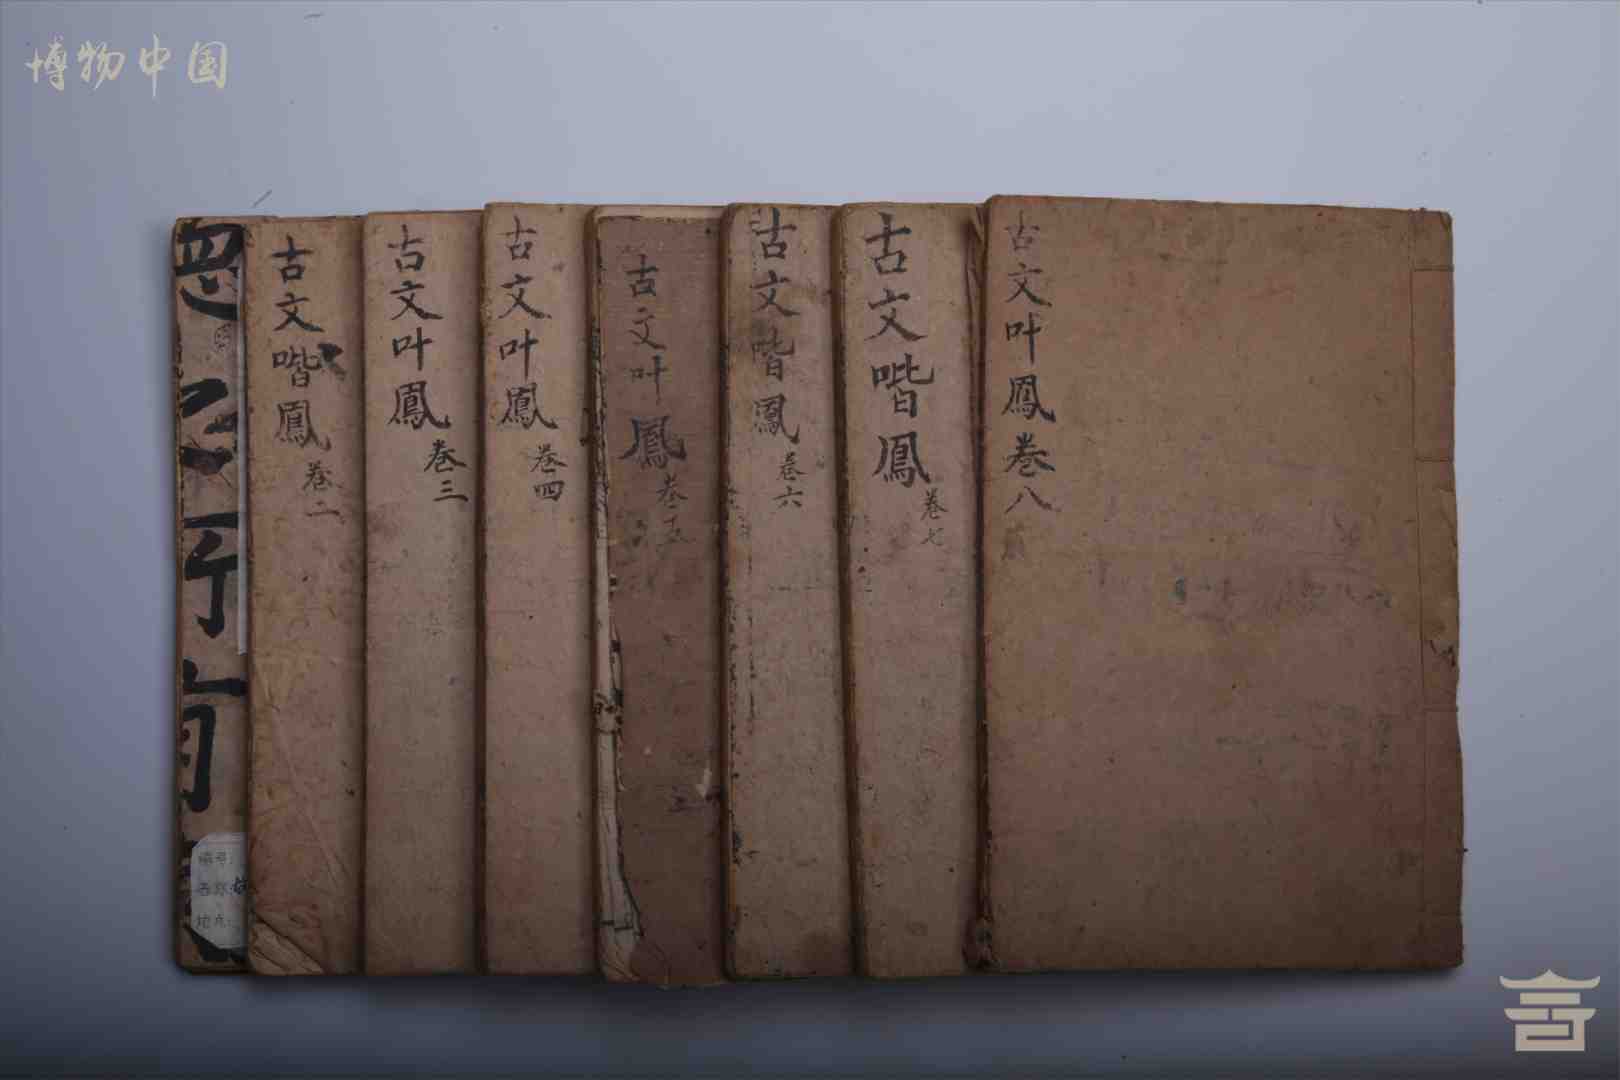 博物中国
古文喈鳳
卷二
古文叶鳳
卷三
古文叶鳳
卷四
古文叶鳳
卷五
古文喈鳳
卷六
古文喈鳳
卷七
古文叶鳳卷八
编号:
名称:
地点: